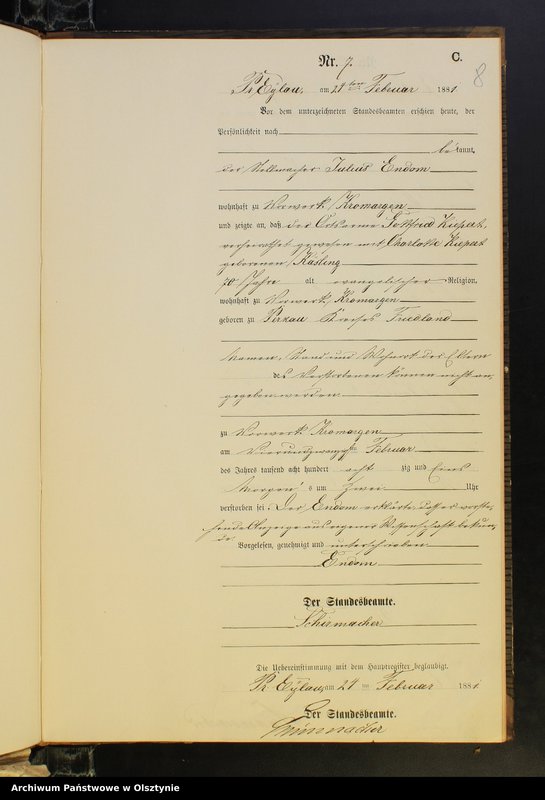 Nr. 7.
C.
8
Pr. Eylau, am 24ten Februar 1881
Vor dem unterzeichneten Standesbeamten erschien heute, der
Persönlichkeit nach
bekannt,
der Stellmacher Julius Endom
wohnhaft zu Vorwerk Kromargen
und zeigte an, daß der Ortsarme Gottfried Kiepat,
verheirathet gewesen mit Charlotte Kiepat
geborenen Kösling
70 Jahre alt evangelischer Religion,
wohnhaft zu Vorwerk Kromargen
geboren zu Kreises Friedland
Namen, Stand und Wohnort der Eltern
des Verstorbenen können nicht an-
gegeben werden.
zu Vorwerk Kromargen
am Vierundzwanzigsten Februar
des Jahres tausend acht hundert acht zig und Eins
Morgens um zwei Uhr
verstorben sei. Der Endom erklärte, daß er vorste-
hende Anzeige aus eigener Wissenschaft bekun-
de.
Vorgelesen, genehmigt und unterschrieben
Endom
Der Standesbeamte.
Schirmacher
Die Uebereinstimmung mit dem Hauptregister beglaubigt.
Pr. Eylau, am 24 ten Februar 1881.
Der Standesbeamte.
Schirmacher
Archiwum Państwowe w Olsztynie